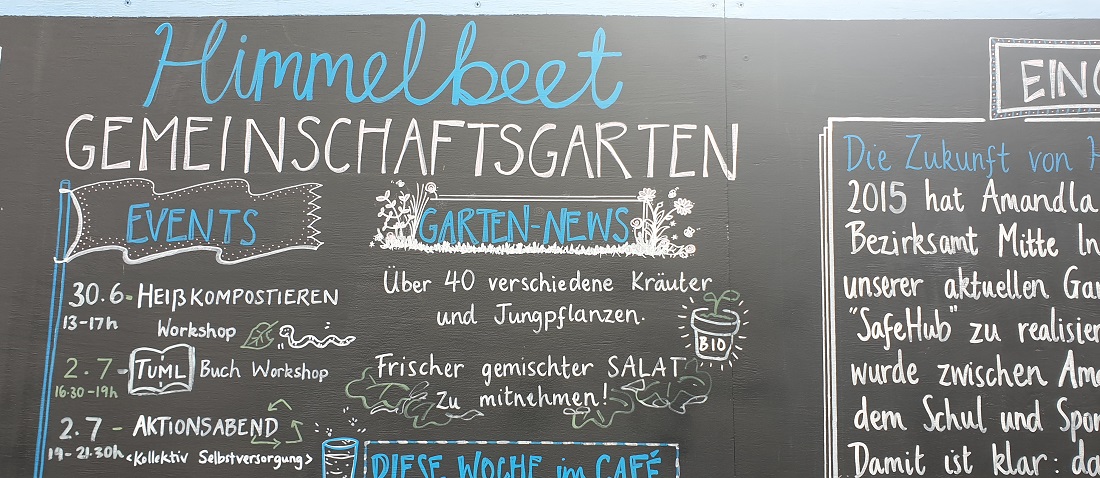 Himmelbeet
GEMEINSCHAFTSGARTEN
EVENTS
30.6- HEIßKOMPOSTIEREN
13-17h Workshop
2.7- TUML Buch Workshop
16.30-19h
2.7 - AKTIONSABEND
19-21.30h <Kollektiv Selbstversorgung>
GARTEN-NEWS
Über 40 verschiedene Kräuter
und Jungpflanzen.
BIO
Frischer gemischter SALAT
zu mitnehmen!
DIESE WOCHE im CAFÉ
Die Zukunft von
2015 hat Amandla
Bezirksamt Mitte
unserer aktuellen
"SafeHub" zu
wurde zwischen
dem Schul und
Damit ist klar: